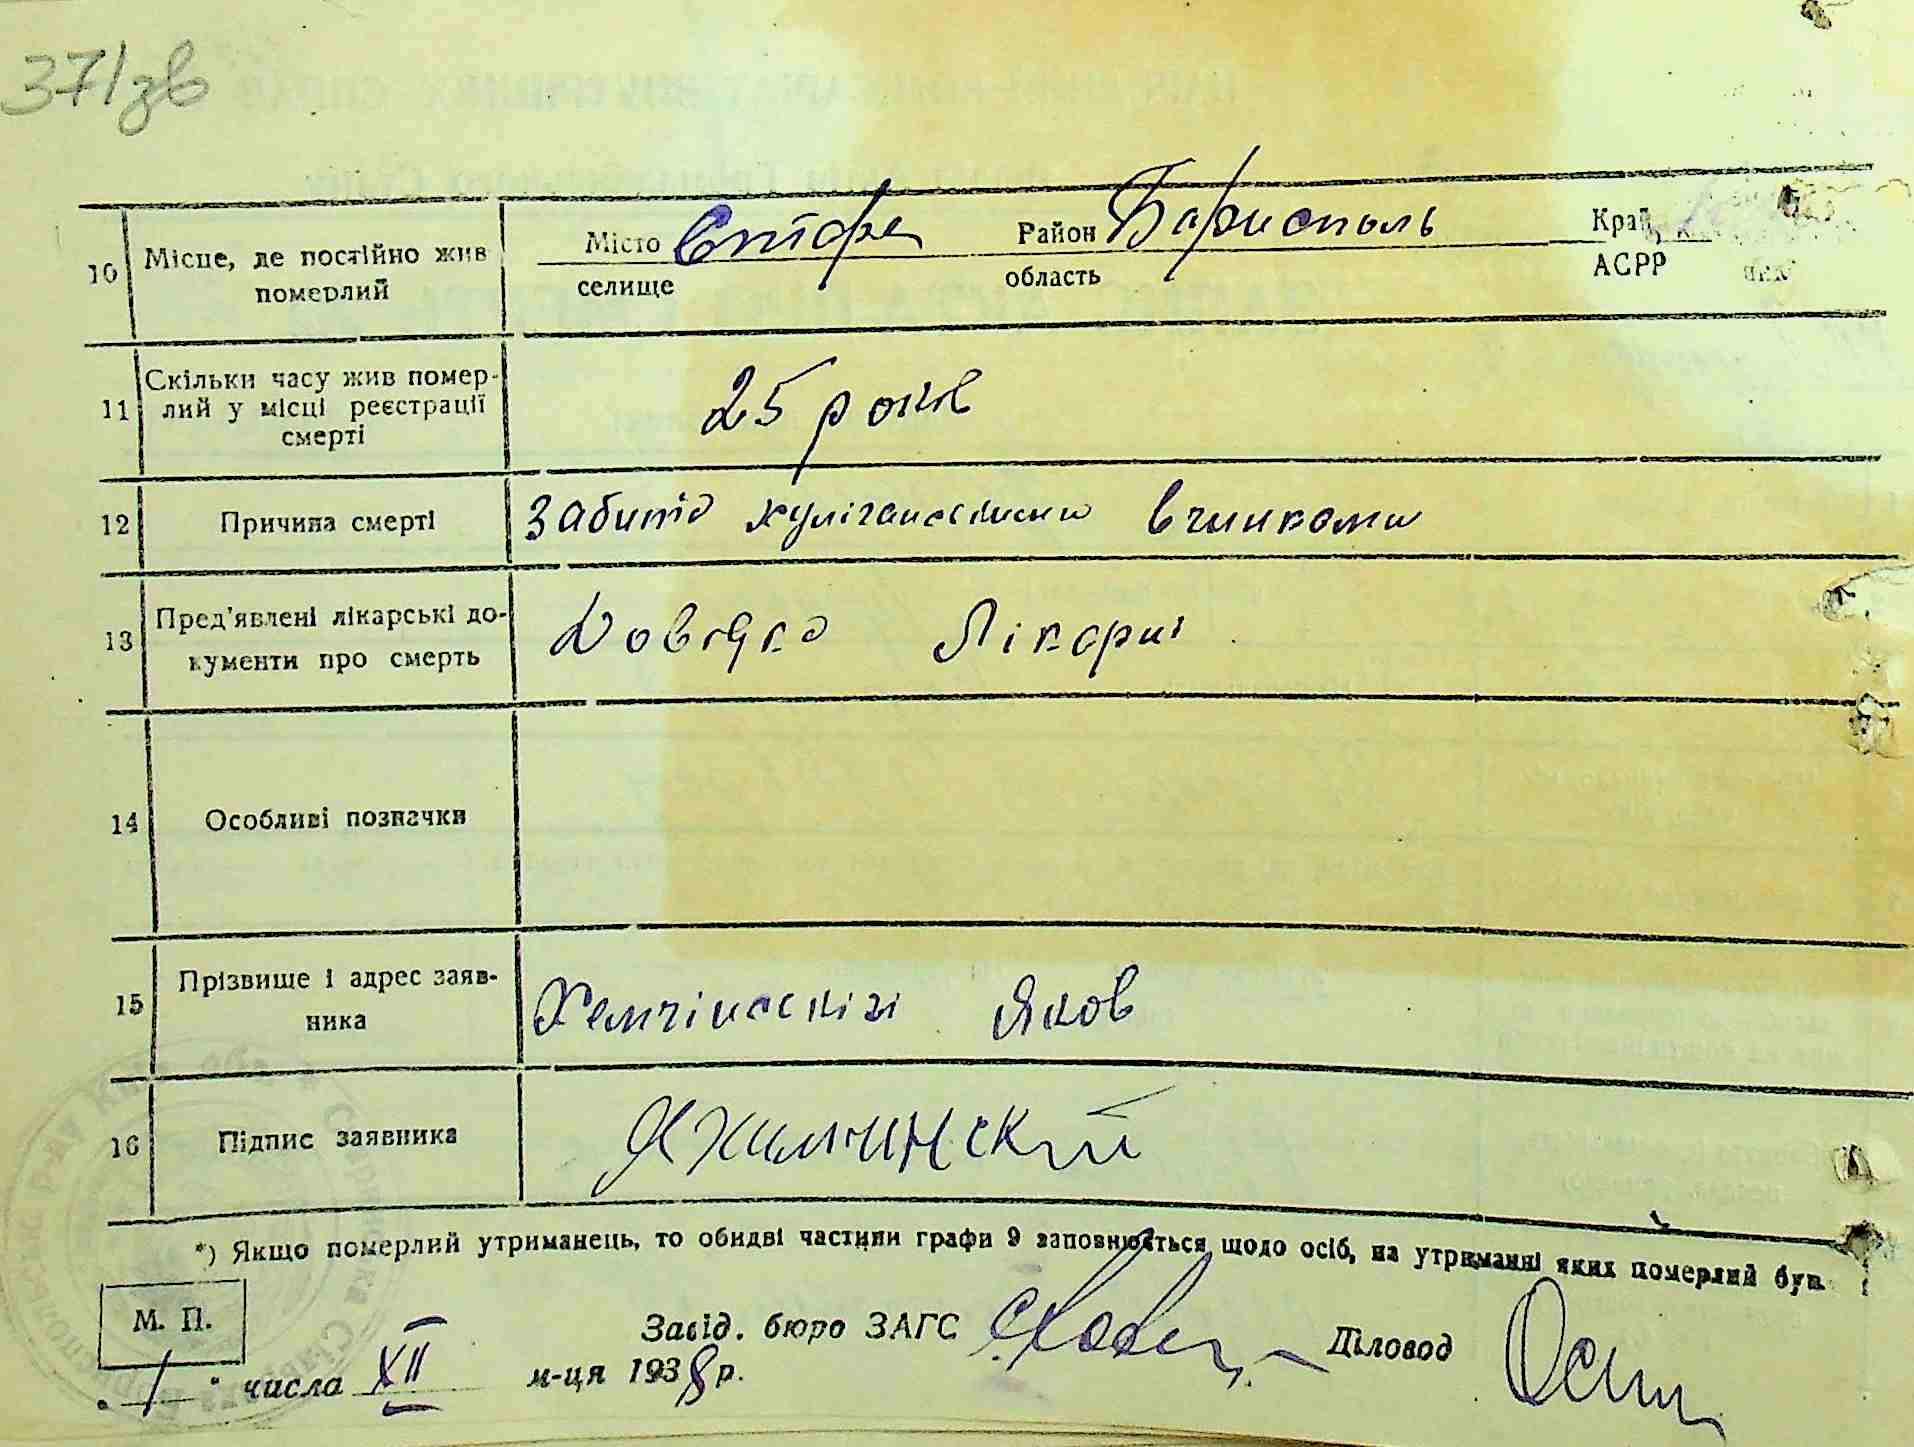 37/зв
10 Місце, де постійно жив померлий
Місто селище
Район Бариспаль область
Край, АСРР
11 Скільки часу жив помер-
лий у місці реєстрації
смерті
25 років
12 Причина смерті
Забитід хуліганськіми вчинками
13 Пред'явлені лікарські до-
кументи про смерть
Довідка Лікарні
14 Особливі позначки
15 Прізвище і адрес заяв-
ника
Хемчінскізі Яков
16 Підпис заявника
ЯХимчинский
*) Якщо померлий утриманець, то обидві частини графи 9 заповнюється щодо осіб, на утриманні яких померлий був.
М. П.
Завід. бюро ЗАГС
Діловод
„ 1 " числа XII м-ця 1938 р.